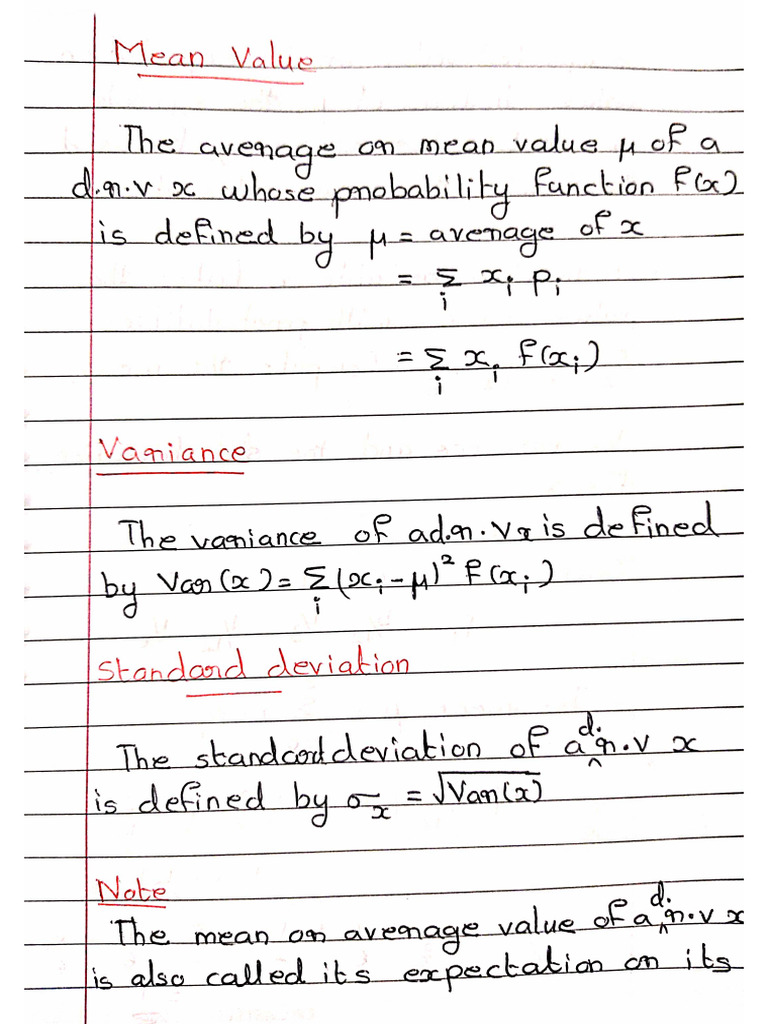 Mean Value
The average or mean value μ of a
d.r.v x whose probability function f(x)
is defined by μ = average of x
= Σ_i x_i p_i
= Σ_i x_i f(x_i)
Variance
The variance of a d.r.v x is defined
by Var(x) = Σ_i (x_i - μ)² f(x_i)
Standard deviation
The standard deviation of a d.r.v x
is defined by σ_x = √Var(x)
Note
The mean or average value of a d.r.v x
is also called its expectation or its